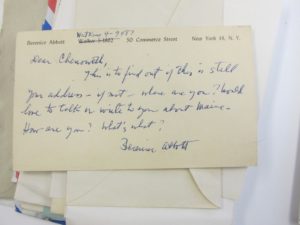 WAtkins 4-9057
Berenice Abbott 50 Commerce Street New York 14, N.Y.
Dear Chenoweth,
This is to find out if this is still
your address – if not – where are you? Would
love to talk or write to you about Maine –
How are you? What's, what?
Berenice Abbott